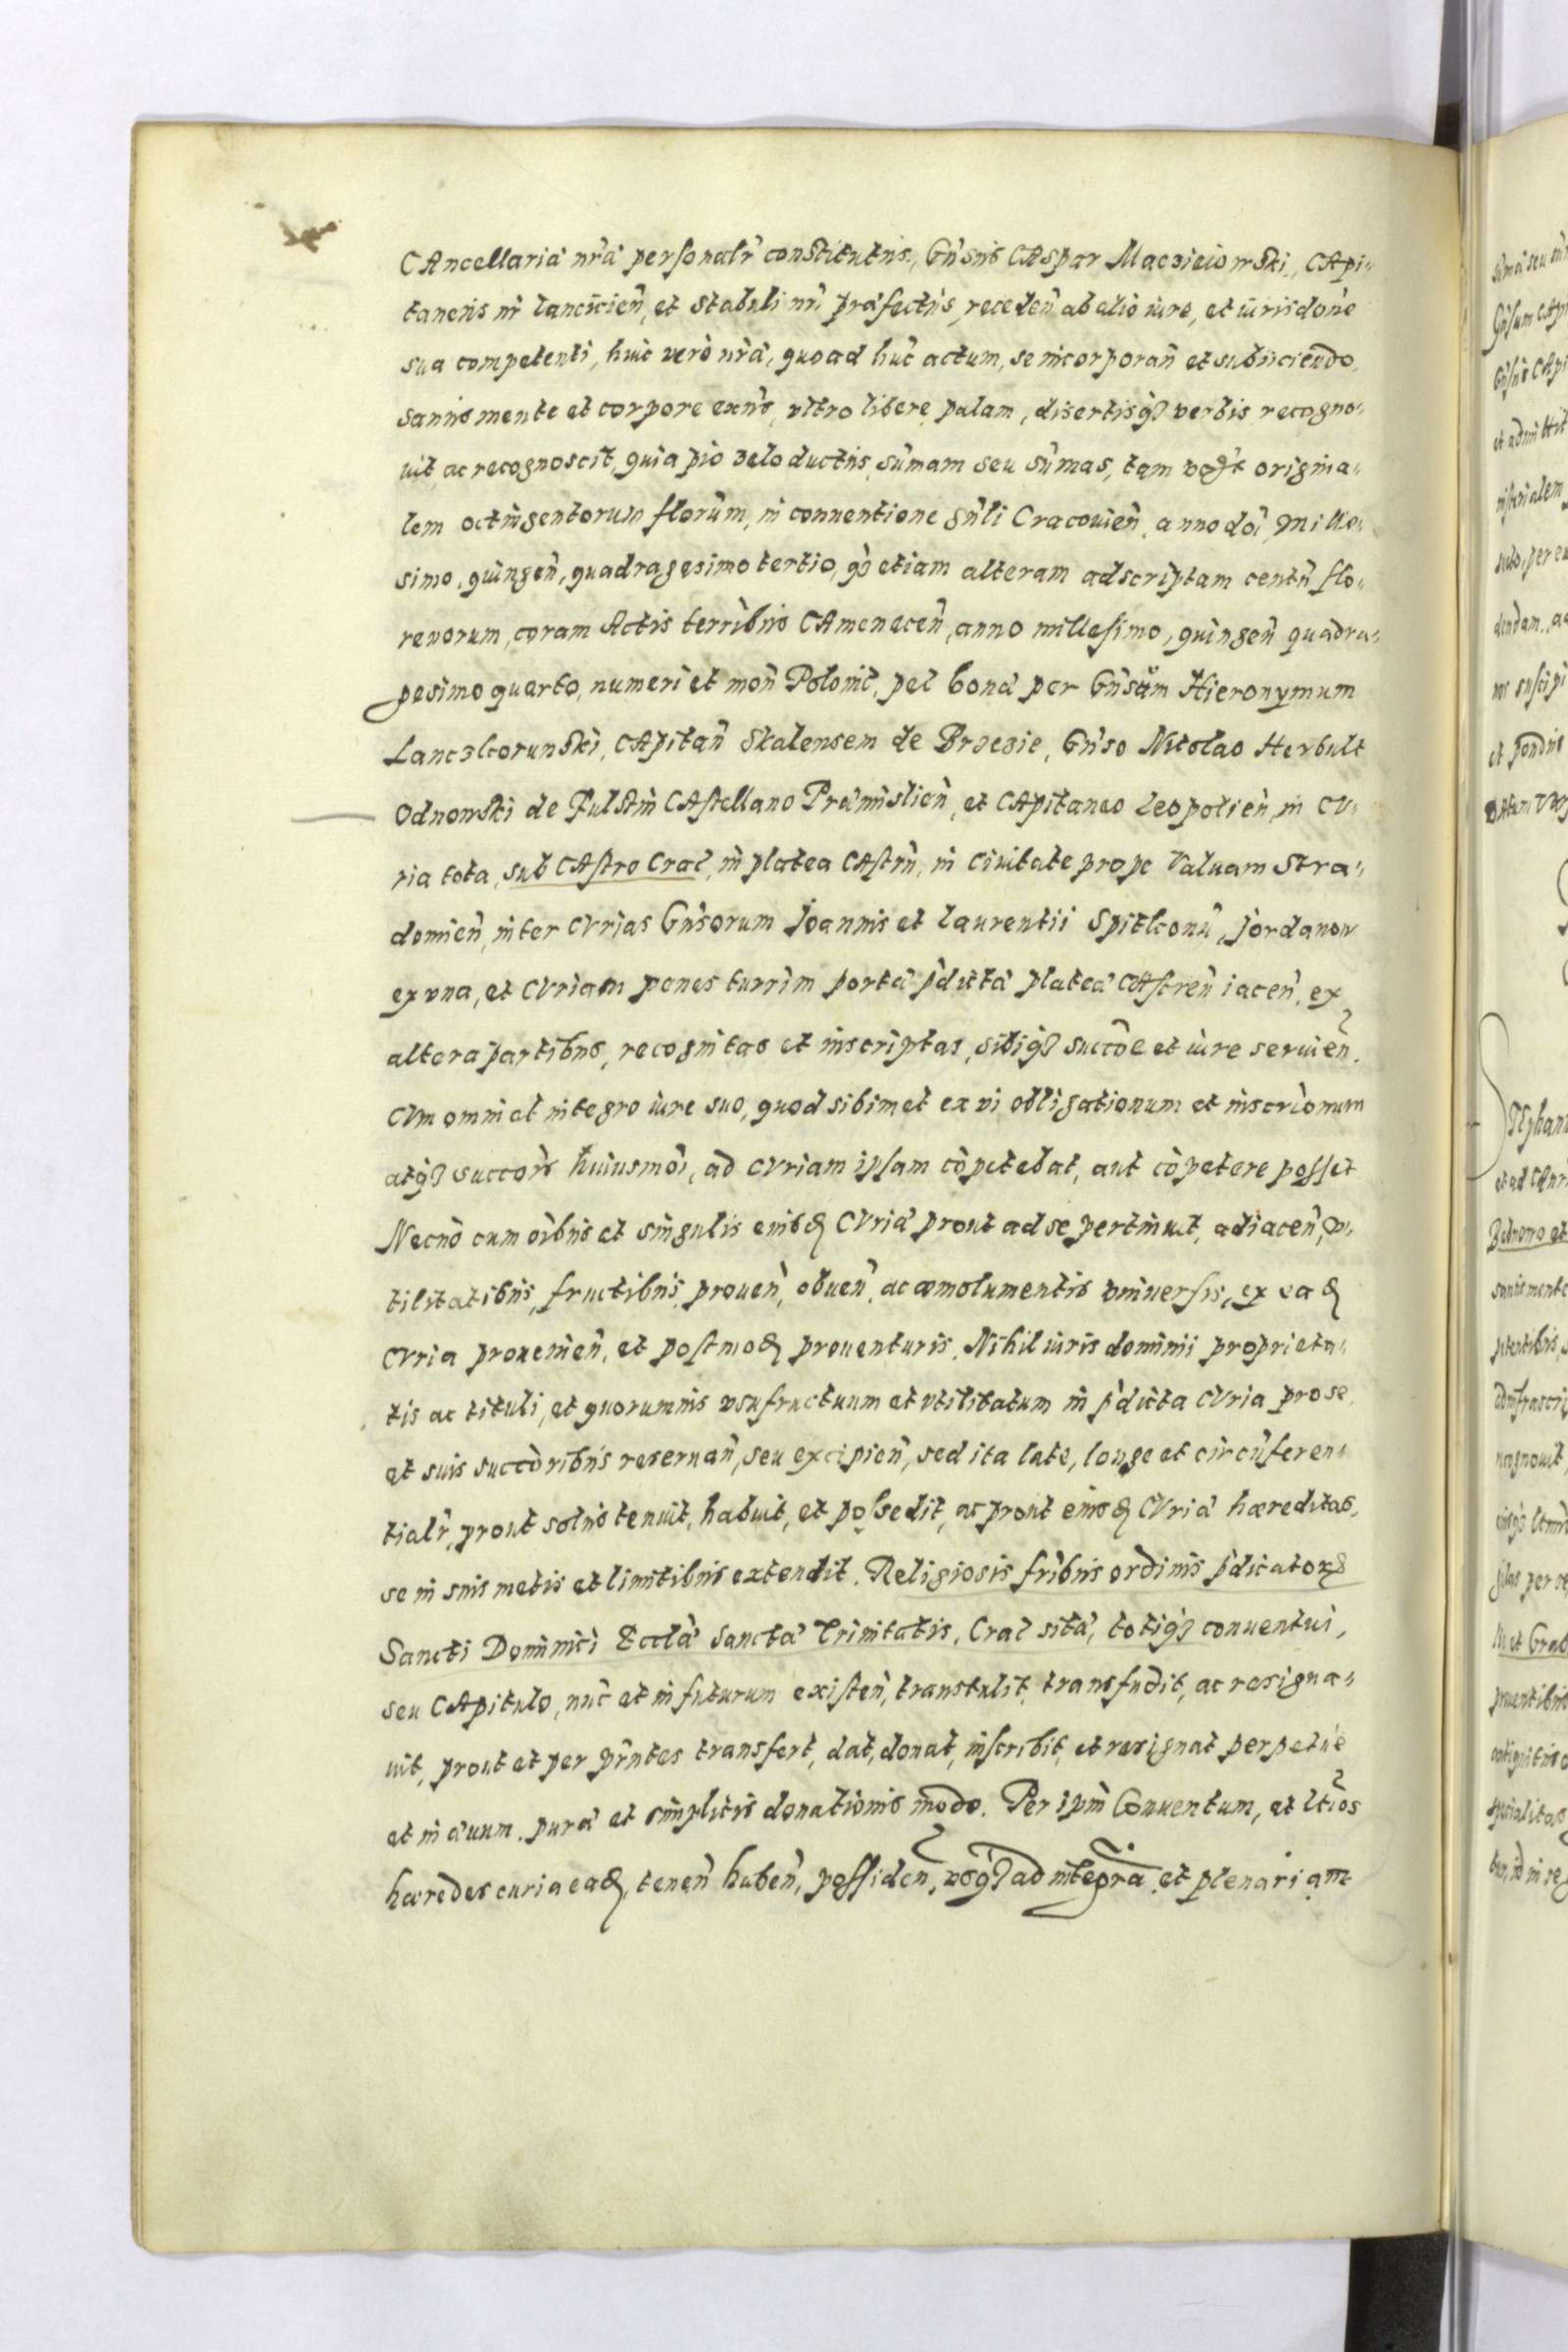 Cancellaria nr̃a personalr̃ constitutus, Gn̄sus Caspar Maczieiowski, Capi„
taneus nr̃ lancicien̄, et stabuli nr̃i præfectus, receden̄ ab alio iure, et iurisdōne
sua competenti, huic verò nr̃æ, quoad hūc actum, se incorporan̄ et subiiciendo,
sanus mente et corpore exn̄s, vltro libere palam, disertisq₃ verbis recogno„
uit, ac recognoscit, quia pio zelo ductus, sūmam seu sūmas, tam origina„
lem octingentorum florūm, in conuentione gn̄li Cracouien̄, anno dn̄i Mille„
simo, quingen̄, quadragesimo tertio, q̄₃ etiam alteram adscriptam centū flo„
renorum, coram Actis terribus Camenecen̄, anno millesimo, quingen̄ quadra„
gesimo quarto, numeri et mon̄ Polonic̄, pel bona per Gn̄sūm Hieronymum
Lanczkorunski, Capitan̄ Skalensem de Brzezie, Gn̄so Nicolao Herbult
Odnowski de Fulstin Castellano Præmislien̄, et Capitaneo Leopolien̄, in Cu„
ria tota, sub Castro Crac̄, in platea Castrn̄, in Ciuitate prope Valuam Stra„
domien̄, inter Curias Gn̄sorum Joannis et Laurentii Spitkonū, Jordanow
ex vna, et Curiam penes turrim portæ p̄dictæ plateæ Castren̄ iacen̄, ex
altera partibus, recognitas et inscriptas, sibiq₃ succōe et iure seruien̄.
Cum omni et integro iure suo, quod sibimet ex vi obligationum et inscriōnum
atq₃ succōrs huiusmōi, ad Curiam ipsam cōpetebat, aut cōpetere posset
Necnō cum oībus et singulis eiusd̄ Curiæ prout ad se pertinuit, adiacen̄, v„
tilitatibus, fructibus, prouen̄, obuen̄, ac æmolumentis vniuersis, ex ead̄
Curia prouenien̄, et postmod̄ prouenturis. Nihil iuris dominii proprieta„
tis ac tituli, et quorumuis vsufructuum et vtilitatum in p̄dicta Curia pro se,
et suis succōribus reseruan̄, seu excipien̄, sed ita late, longe et circūferen„
tialr̃, prout solus tenuit, habuit, et possedit, ac prout eiusd̄ Curiæ hæreditas,
se in suis metis et limitibus extendit. Religiosis frībus ordinis p̄dicatorꝝ
Sancti Dominici Ecclæ Sanctæ Trinitatis, Crac̄ sitæ, totiq₃ conuentui,
seu Capitulo, nūc et in futurum existen̄, transtulit, transfudit, ac resigna„
uit, prout et per pn̄tes transfert, dat, donat, inscribit, et resignat perpetue
et in æuum. puræ et simplicis donationis modo. Per ipm̄ Conuentum, et ltīos
hæredes curia ead̄, tenen̄ haben̄, possiden̄, vsq₃ ad integrā et plenariam